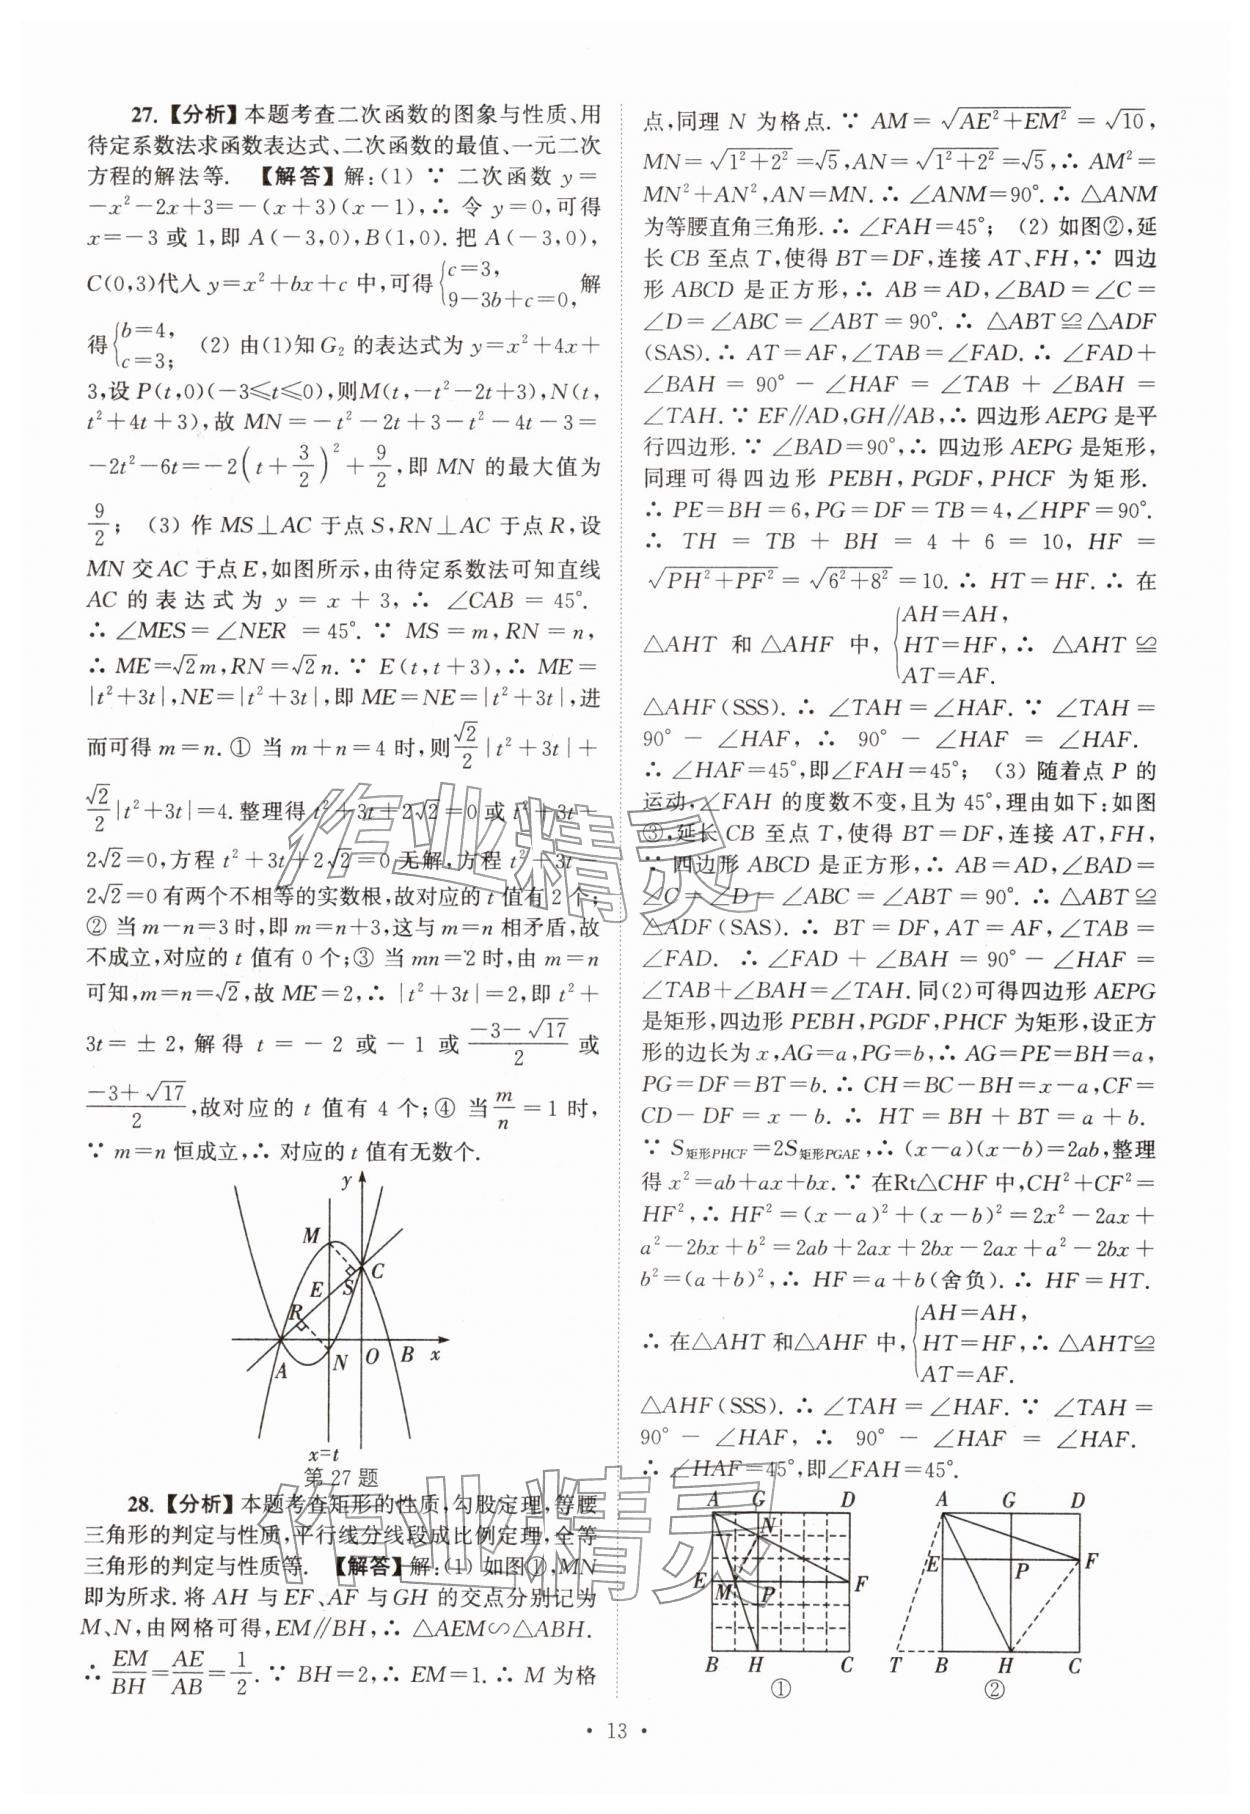 27.【分析】本题考查二次函数的图象与性质、用
待定系数法求函数表达式、二次函数的最值、一元二次
方程的解法等. 【解答】解:(1) ∵ 二次函数 y=
-x²-2x+3=-(x+3)(x-1),∴ 令 y=0,可得
x=-3 或 1,即 A(-3,0),B(1,0).把 A(-3,0),
C(0,3)代入 y=x²+bx+c 中,可得{c=3, 9-3b+c=0, 解
得{b=4, c=3; (2) 由(1)知G₂ 的表达式为 y=x²+4x+
3,设 P(t,0)(-3≤t≤0),则M(t,-t²-2t+3),N(t,
t²+4t+3),故 MN=-t²-2t+3-t²-4t-3=
-2t²-6t=-2(t+3/2)²+9/2,即 MN 的最大值为
9/2; (3) 作 MS⊥AC 于点 S,RN⊥AC 于点 R,设
MN 交 AC 于点 E,如图所示,由待定系数法可知直线
AC 的表达式为 y=x+3,∴ ∠CAB=45°.
∴ ∠MES=∠NER=45°. ∵ MS=m,RN=n,
∴ ME=√2m,RN=√2n. ∵ E(t,t+3),∴ ME=
|t²+3t|,NE=|t²+3t|,即 ME=NE=|t²+3t|,进
而可得 m=n. ① 当 m+n=4 时,则√2/2|t²+3t|+
√2/2|t²+3t|=4.整理得 t²+3t+2√2=0 或 t²+3t-
2√2=0,方程 t²+3t+2√2=0 无解,方程 t²+3t-
2√2=0 有两个不相等的实数根,故对应的 t 值有 2 个;
② 当 m-n=3 时,即 m=n+3,这与 m=n 相矛盾,故
不成立,对应的 t 值有 0 个;③ 当 mn=2 时,由 m=n
可知,m=n=√2,故 ME=2,∴ |t²+3t|=2,即 t²+
3t=±2,解得 t=-2 或 -1 或 (-3-√17)/2 或
(-3+√17)/2,故对应的 t 值有 4 个;④ 当 m/n=1 时,
∵ m=n 恒成立,∴ 对应的 t 值有无数个.
y
M
C
E
S
R
A
N
O
B
x
x=t
第 27 题
28.【分析】本题考查矩形的性质,勾股定理,等腰
三角形的判定与性质,平行线分线段成比例定理,全等
三角形的判定与性质等. 【解答】解:(1) 如图①,MN
即为所求.将 AH 与 EF、AF 与 GH 的交点分别记为
M、N,由网格可得,EM∥BH,∴ △AEM∽△ABH.
∴ EM/BH=AE/AB=1/2. ∵ BH=2,∴ EM=1.∴ M 为格
点,同理 N 为格点. ∵ AM=√(AE²+EM²)=√10,
MN=√(1²+2²)=√5,AN=√(1²+2²)=√5,∴ AM²=
MN²+AN²,AN=MN.∴ ∠ANM=90°.∴ △ANM
为等腰直角三角形.∴ ∠FAH=45°; (2) 如图②,延
长 CB 至点 T,使得 BT=DF,连接 AT、FH,∵ 四边
形 ABCD 是正方形,∴ AB=AD,∠BAD=∠C=
∠D=∠ABC=∠ABT=90°.∴ △ABT≌△ADF
(SAS).∴ AT=AF,∠TAB=∠FAD.∴ ∠FAD+
∠BAH=90°-∠HAF=∠TAB+∠BAH=
∠TAH. ∵ EF∥AD,GH∥AB,∴ 四边形 AEPG 是平
行四边形. ∵ ∠BAD=90°,∴ 四边形 AEPG 是矩形,
同理可得四边形 PEBH,PGDF,PHCF 为矩形.
∴ PE=BH=6,PG=DF=TB=4,∠HPF=90°.
∴ TH=TB+BH=4+6=10,HF=
√(PH²+PF²)=√(6²+8²)=10.∴ HT=HF.∴ 在
△AHT 和△AHF 中,{AH=AH, HT=HF, AT=AF. ∴ △AHT≌
△AHF(SSS).∴ ∠TAH=∠HAF. ∵ ∠TAH=
90°-∠HAF,∴ 90°-∠HAF=∠HAF.
∴ ∠HAF=45°,即∠FAH=45°; (3) 随着点 P 的
运动,∠FAH 的度数不变,且为 45°,理由如下:如图
③,延长 CB 至点 T,使得 BT=DF,连接 AT,FH,
∵ 四边形 ABCD 是正方形,∴ AB=AD,∠BAD=
∠C=∠D=∠ABC=∠ABT=90°.∴ △ABT≌
△ADF(SAS).∴ BT=DF,AT=AF,∠TAB=
∠FAD. ∴ ∠FAD+∠BAH=90°-∠HAF=
∠TAB+∠BAH=∠TAH.同(2)可得四边形 AEPG
是矩形,四边形 PEBH,PGDF,PHCF 为矩形,设正方
形的边长为 x,AG=a,PG=b,∴ AG=PE=BH=a,
PG=DF=BT=b.∴ CH=BC-BH=x-a,CF=
CD-DF=x-b.∴ HT=BH+BT=a+b.
∵ S矩形PHCF=2S矩形PGAE,∴ (x-a)(x-b)=2ab,整理
得 x²=ab+ax+bx. ∵ 在Rt△CHF 中,CH²+CF²=
HF²,∴ HF²=(x-a)²+(x-b)²=2x²-2ax+
a²-2bx+b²=2ab+2ax+2bx-2ax+a²-2bx+
b²=(a+b)²,∴ HF=a+b(舍负).∴ HF=HT.
∴ 在△AHT 和△AHF 中,{AH=AH, HT=HF, AT=AF. ∴ △AHT≌
△AHF(SSS).∴ ∠TAH=∠HAF. ∵ ∠TAH=
90°-∠HAF,∴ 90°-∠HAF=∠HAF.
∴ ∠HAF=45°,即∠FAH=45°.
A G D
N
E M P F
B H C
①
A G D
E P F
T B H C
②
· 13 ·
作业精灵
作业精灵